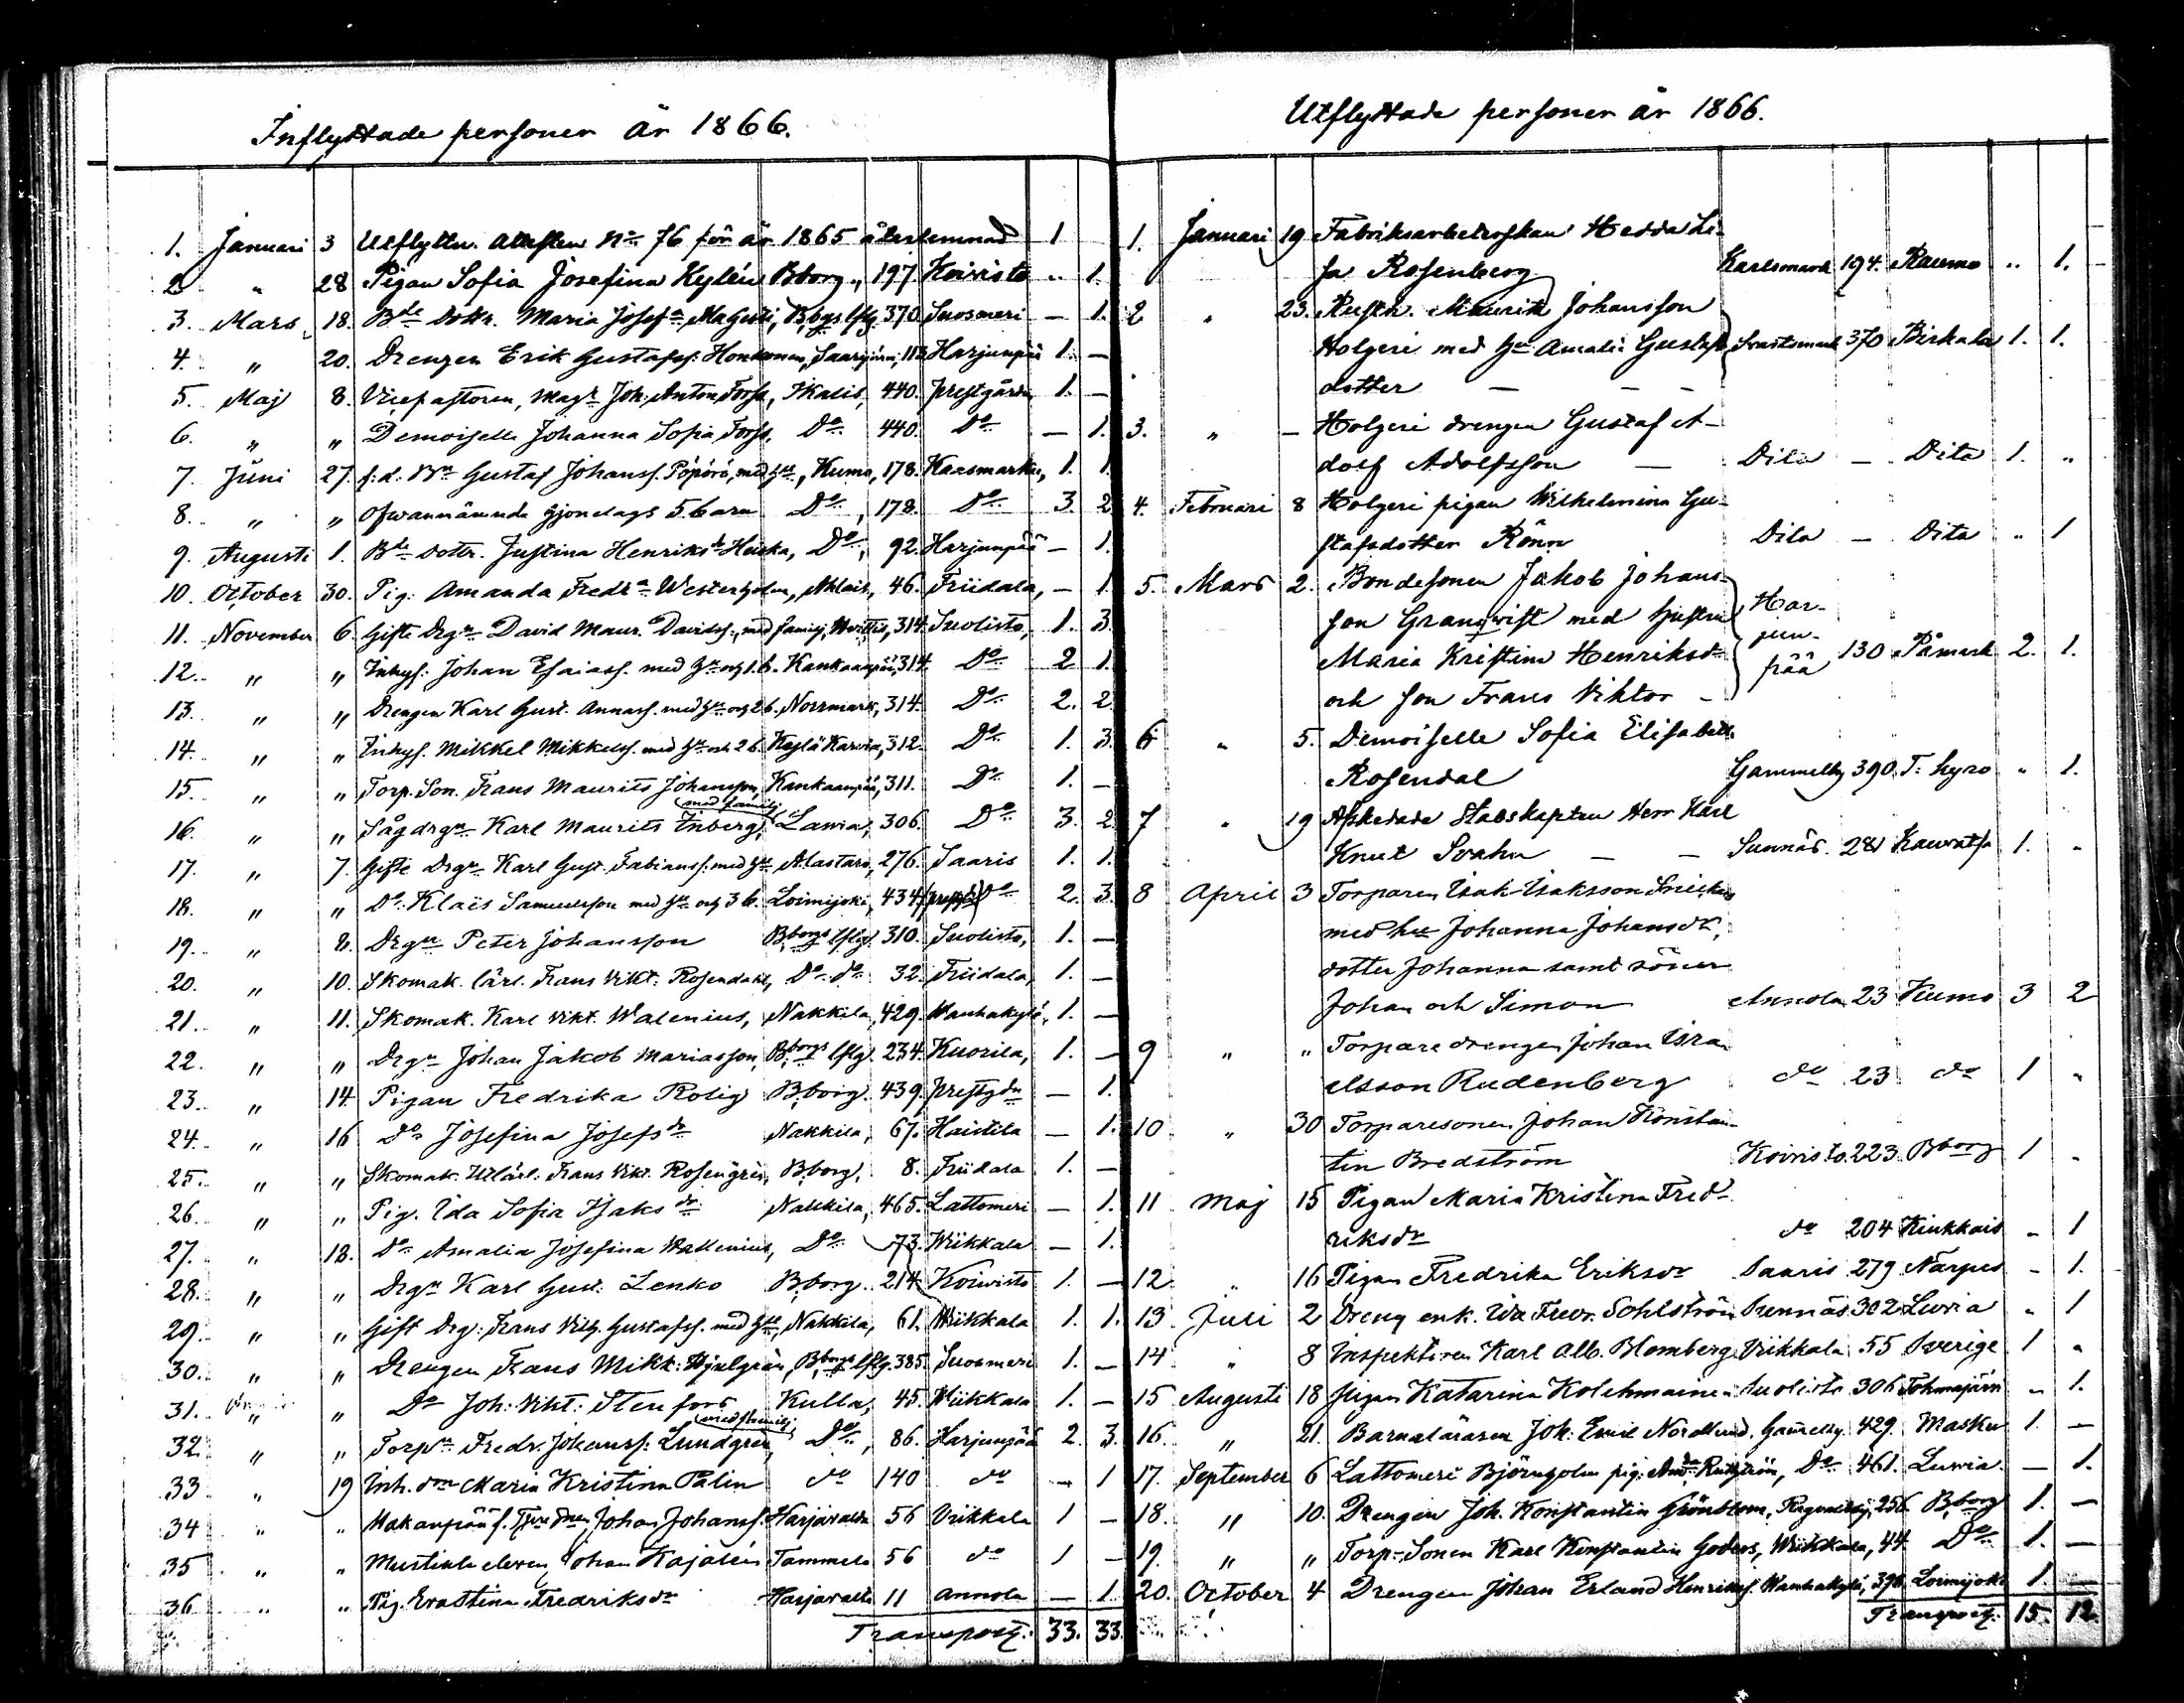 Inflyttade personer år 1866.
1. Januari 3 Utflyttn. attesten No 76 för år 1865 återlemnad 1
2 " 28 Pigan Sofia Josefina Hylén Bborg, 197. Koivisto .. 1.
3. Mars 18. Bde dottr. Maria Josefa Bborgs lfg. 370. Suosmeri — 1.
4. " 20. Drengen Erik Gustafss: Honkonen, 113. Harjunpää 1. —
5. Maj 8. Vicepastoren, Magr Joh. Anton Forss, Ikalis, 440. prestgården 1. —
6. " " Demoiselle Johanna Sofia Forss, Do 440. Do — 1.
7. Juni 27. f.d. Bn Gustaf Johanss. Pöpörö, med Hu, Kumo, 178. Kaasmarku, 1. 1.
8. " " Ofvannämnde Hjonelags 5 barn Do, 178. Do 3. 2
9. Augusti 1. Bde dotr. Justina Henriksdr Heiska, Do, 92. Harjunpää — 1.
10. October 30. Pig: Amanda Fredr:a Westerholm, Ahlais, 46. Friidala, — 1.
11. November 6. Gifte Drgn David Maur. Davidss., med familj, 314. Suolisto, 1. 3.
12. " " Inhys: Johan Esaiass. med Hu och 1. b. Kankaanpää, 314. Do 2 1.
13. " " Drengen Karl Gust. Annass. med Hu och 2 b. Norrmark, 314. Do 2. 2
14. " " Inhys. Mikkel Mikkelss. med Hu och 2 b. Karvia, 312. Do 1. 3.
15. " " Torp. Son. Frans Maurits Johansson, Kankaanpää, 311. Do 1. —
16. " " Sågdrgn Karl Maurits Inberg, med familj, Lavia, 306. Do 3. 2
17. " 7. Gifte Drgn Karl Gust. Fabianss. med Hu Alastaro, 276. Saaris 1. 1.
18. " " Do Klaës Samuelsson med Hu och 3 b. Loimijoki, 434 Do 2. 3.
19. " 8. Drgn Peter Johansson Bborgs lfg. 310. Suolisto, 1. —
20. " 10. Skomak. lärl. Frans Vikt. Rosendahl, Do do 32. Friidala, 1. —
21. " 11. Skomak. Karl Vikt. Walenius, Nakkila, 429. Wanhakylä, 1. —
22. " " Drgn Johan Jakob Mariasson, Bborgs lfg. 234. Kuorila, 1. —
23. " 14. Pigan Fredrika Rolig Bborg. 439. prestgdn — 1.
24. " 16 Do Josefina Josefsdr Nakkila, 67. Haistila — 1.
25. " " Skomak. Utlärl. Frans Vikt. Rosengrén, Bborg, 8. Friidala 1. —
26. " " Pig. Ida Sofia Isaksdr Nakkila, 465. Lattomeri — 1.
27. " 18. Do Amalia Josefina Wallenius, Do 73. Wiikkala — 1.
28. " " Drgn Karl Gust. Lenko Bborg. 214. Koivisto 1. —
29. " " Gift Drg: Frans Vilh. Gustafss. med Hu, Nakkila, 61. Wiikkala 1. 1.
30. " " Drengen Frans Mikk: Bborgs lfg. 385. Suosmeri 1. —
31. " " Do Joh: Vikt: Stenfors Kulla, 45. Wiikkala 1. —
32. " " Torpn Fredr. Johanss: Lundgren, med familj, Do, 86. Harjunpää 2. 3.
33 " 19 Inh. dm Maria Kristina Palin do 140 do — 1
34 " " Johan Johanss. Harjavalta 56 Viikkala 1 —
35 " " Mustiala eleven, Johan Kajalén Tammela 56 do 1 —
36 " " Pig. Eva Stina Fredriksdr Harjavalta 11 Annola — 1.
Transport. 33. 33.
Utflyttade personer år 1866.
1. Januari 19 Fabriksarbetrskan Hedda Li-
sa Rosenberg Karlsmark 194. Raumo .. 1.
2 " 23. Rusth. Maurits Johansson
Holgeri med Hu Amalia Gustafs Svartsmark 370 Birkala 1. 1.
dotter — — —
3. " — Holgeri drengen Gustaf A-
dolf Adolfsson — Dito — Dito 1. "
4. Februari 8 Holgeri pigan Wilhelmina Gu-
stafsdotter Rönn Dito — Dito " 1
5. Mars 2. Bondesonen Jakob Johans-
son Granqwist med hustru Har-
Maria Kristina Henriksdr jun-
och son Frans Viktor — pää 130 Påmark 2. 1.
6 " 5. Demoiselle Sofia Elisabeth
Rosendal Gammelby 390. T: kyro " 1.
7 " 19 Afskedade Stabskapten Herr Karl
Knut Svahn — — Sunnäs. 281 Kauvatsa 1. "
8 April 3 Torparen Isak Isaksson
med hu Johanna Johansdr,
dotter Johanna samt söner
Johan och Simon Annola 23 Kumo 3 2
9 " " Torparedrengen Johan Isra-
elsson Rudenberg do 23 do 1 "
10 " 30 Torparesonen Johan Konstan-
tin Bredström Koivisto 223. Bborg 1 "
11 Maj 15 Pigan Maria Kristina Fred-
riksdr do 204 Kiukkais " 1
12 " 16 Pigan Fredrika Eriksdr Saaris 279 Närpes " 1.
13 Juli 2 Dreng enk. Ida Fredr. Sohlström Sunnäs 302 Luvia " 1
14 " 8 Inspektoren Karl Alb. Blomberg Viikkala 55 Sverige 1 "
15 Augusti 18 Pigan Katarina Kolehmainen Suolisto 306 Tohmajärvi " 1.
16. " 21. Barnaläraren Joh: Emil Nordlund, Gam̄elby. 429. Masku 1. —
17. September 6 Lattomeri Björnholm pig: Do 461. Luvia. — 1.
18. " 10. Drengen Joh. Konstantin Grönblom, 256. Bborg 1. —
19. " " Torp.-Sonen Karl Konstantin Goders, Wiikkala, 44. Do 1. —
20. October 4 Drengen Johan Erland Henrikss. Wanhakylä, 398. Loimijoki 1. —
Transport: 15. 12.